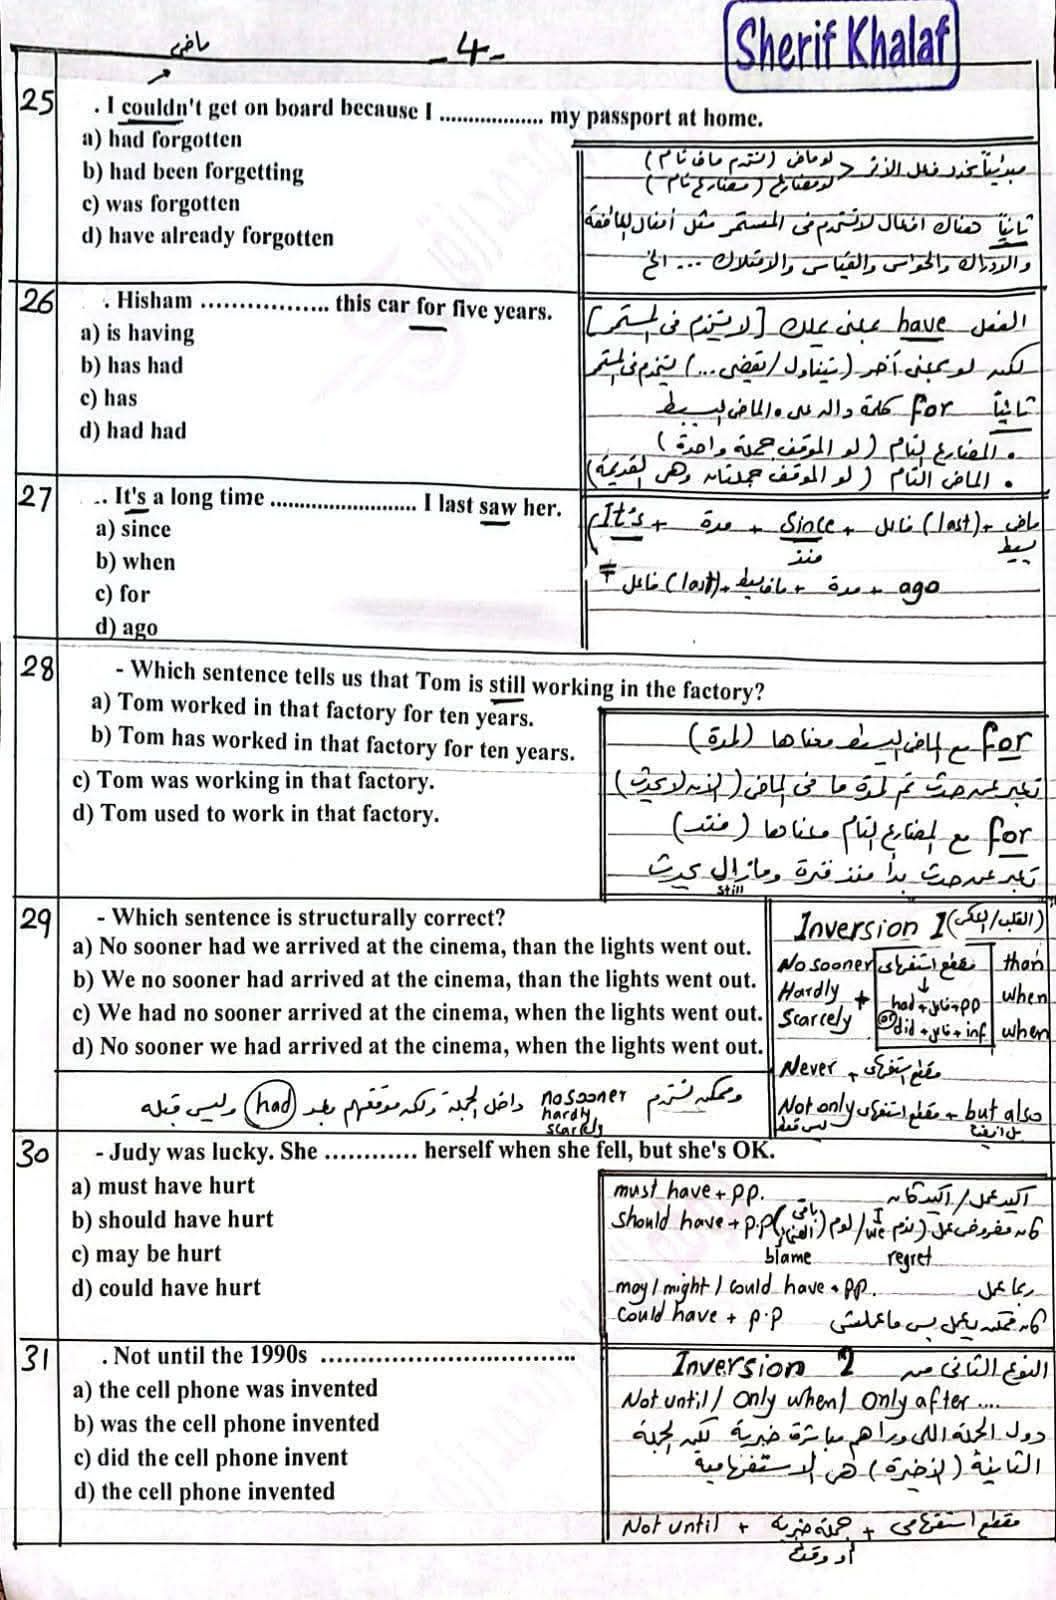 ماضى
-4-
Sherif Khalaf
25
. I couldn't get on board because I .................. my passport at home.
a) had forgotten
b) had been forgetting
c) was forgotten
d) have already forgotten
مبدئياً نحدد فعل الأثر < لو ماضى (نستخدم ماضى تام)
لو مضارع (مضارع تام)
ثانياً هناك أفعال لا تستخدم فى المستمر مثل أفعال
والإدراك والحواس والقياس والامتلاك ... الخ
26
. Hisham ................ this car for five years.
a) is having
b) has had
c) has
d) had had
الفعل have بمعنى يملك [لا يستخدم فى المستمر]
لكن لو بمعنى آخر (يتناول / يقضى ...) يستخدم فى المستمر
ثانياً for كلمة دالة على • الماضى البسيط
• المضارع التام (لو الموقف جملة واحدة)
• الماضى التام (لو الموقف جملتان وهى القديمة)
27
.. It's a long time ......................... I last saw her.
a) since
b) when
c) for
d) ago
(It's + مدة + since + فاعل (last) + ماضى بسيط
منذ
فاعل (last) + ماضى بسيط + مدة + ago
28
- Which sentence tells us that Tom is still working in the factory?
a) Tom worked in that factory for ten years.
b) Tom has worked in that factory for ten years.
c) Tom was working in that factory.
d) Tom used to work in that factory.
for مع الماضى البسيط معناها (لمدة)
تعبر عن حدث تم لمدة ما فى الماضى (الآن لا يحدث)
for مع المضارع التام معناها (منذ)
تعبر عن حدث بدأ منذ فترة ومازال يحدث
still
29
- Which sentence is structurally correct?
a) No sooner had we arrived at the cinema, than the lights went out.
b) We no sooner had arrived at the cinema, than the lights went out.
c) We had no sooner arrived at the cinema, when the lights went out.
d) No sooner we had arrived at the cinema, when the lights went out.
Inversion 1 (القلب/العكس)
No sooner
Hardly
Scarcely
+
مقطع استفهامى
↓
had + فاعل + pp
or did + فاعل + inf
than
when
when
Never + مقطع استفهامى
Not only مقطع استفهامى + but also
ليس فقط
بل أيضاً
وممكن نستخدم no sooner hardly scarcely داخل الجملة ولكن موقعهم بعد (had) وليس قبله
30
- Judy was lucky. She ............ herself when she fell, but she's OK.
a) must have hurt
b) should have hurt
c) may be hurt
d) could have hurt
must have + pp. أكيد عمل / أكيد كان
should have + p.p كان مفروض عمل (ندم I we / لوم باقى الضمائر)
blame regret
may / might / could have + pp. ربما عمل
could have + p.p كان ممكن يعمل بس ما عملش
31
. Not until the 1990s .................................
a) the cell phone was invented
b) was the cell phone invented
c) did the cell phone invent
d) the cell phone invented
النوع الثانى من Inversion 2
Not until / Only when / Only after ....
دول الجملة اللى وراهم مباشرة خبرية لكن الجملة
الثانية (الأخيرة) هى الاستفهامية
Not until + جملة خبرية + مقطع استفهامى
أو وقت